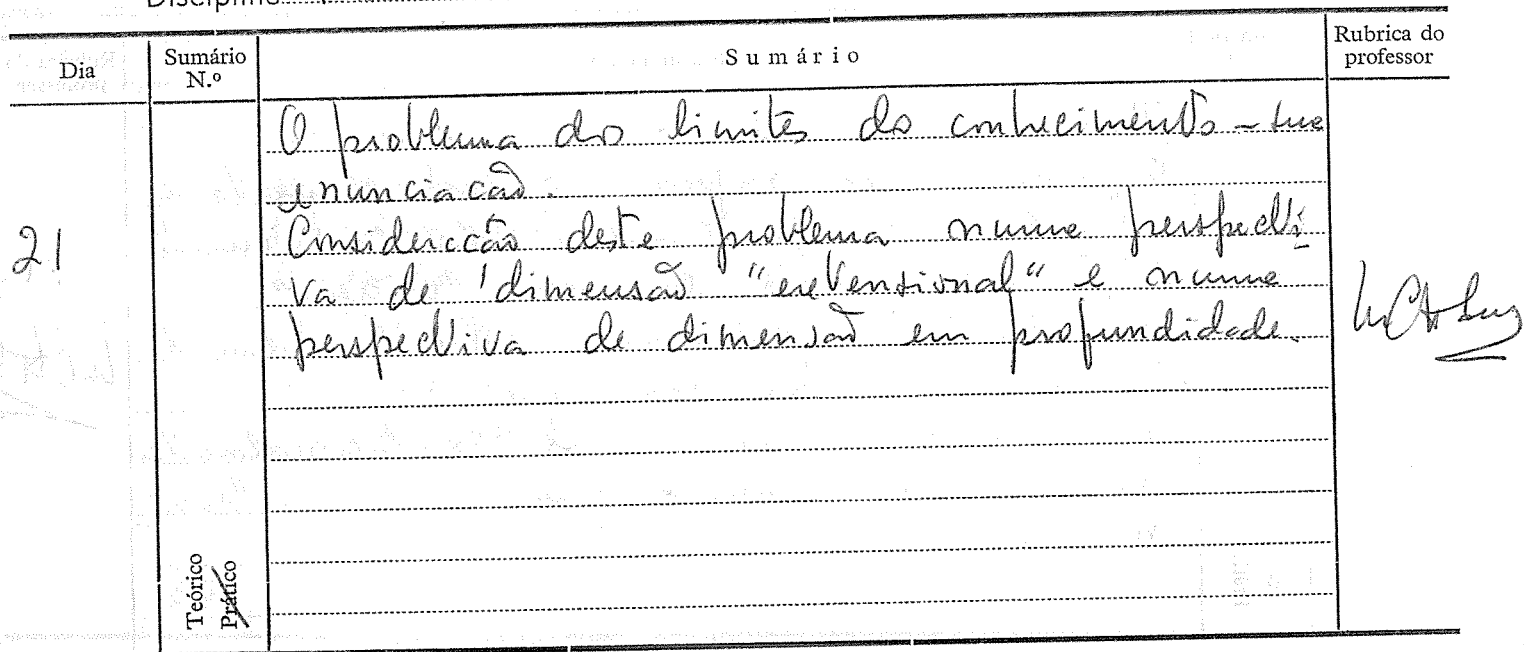 Dia
Sumário N.º
Sumário
Rubrica do professor
21
O problema dos limites do conhecimento - sua
enunciação.
Consideração deste problema numa perspecti-
va de dimensão "extensional" e numa
perspectiva de dimensão em profundidade.
Teórico
Prático